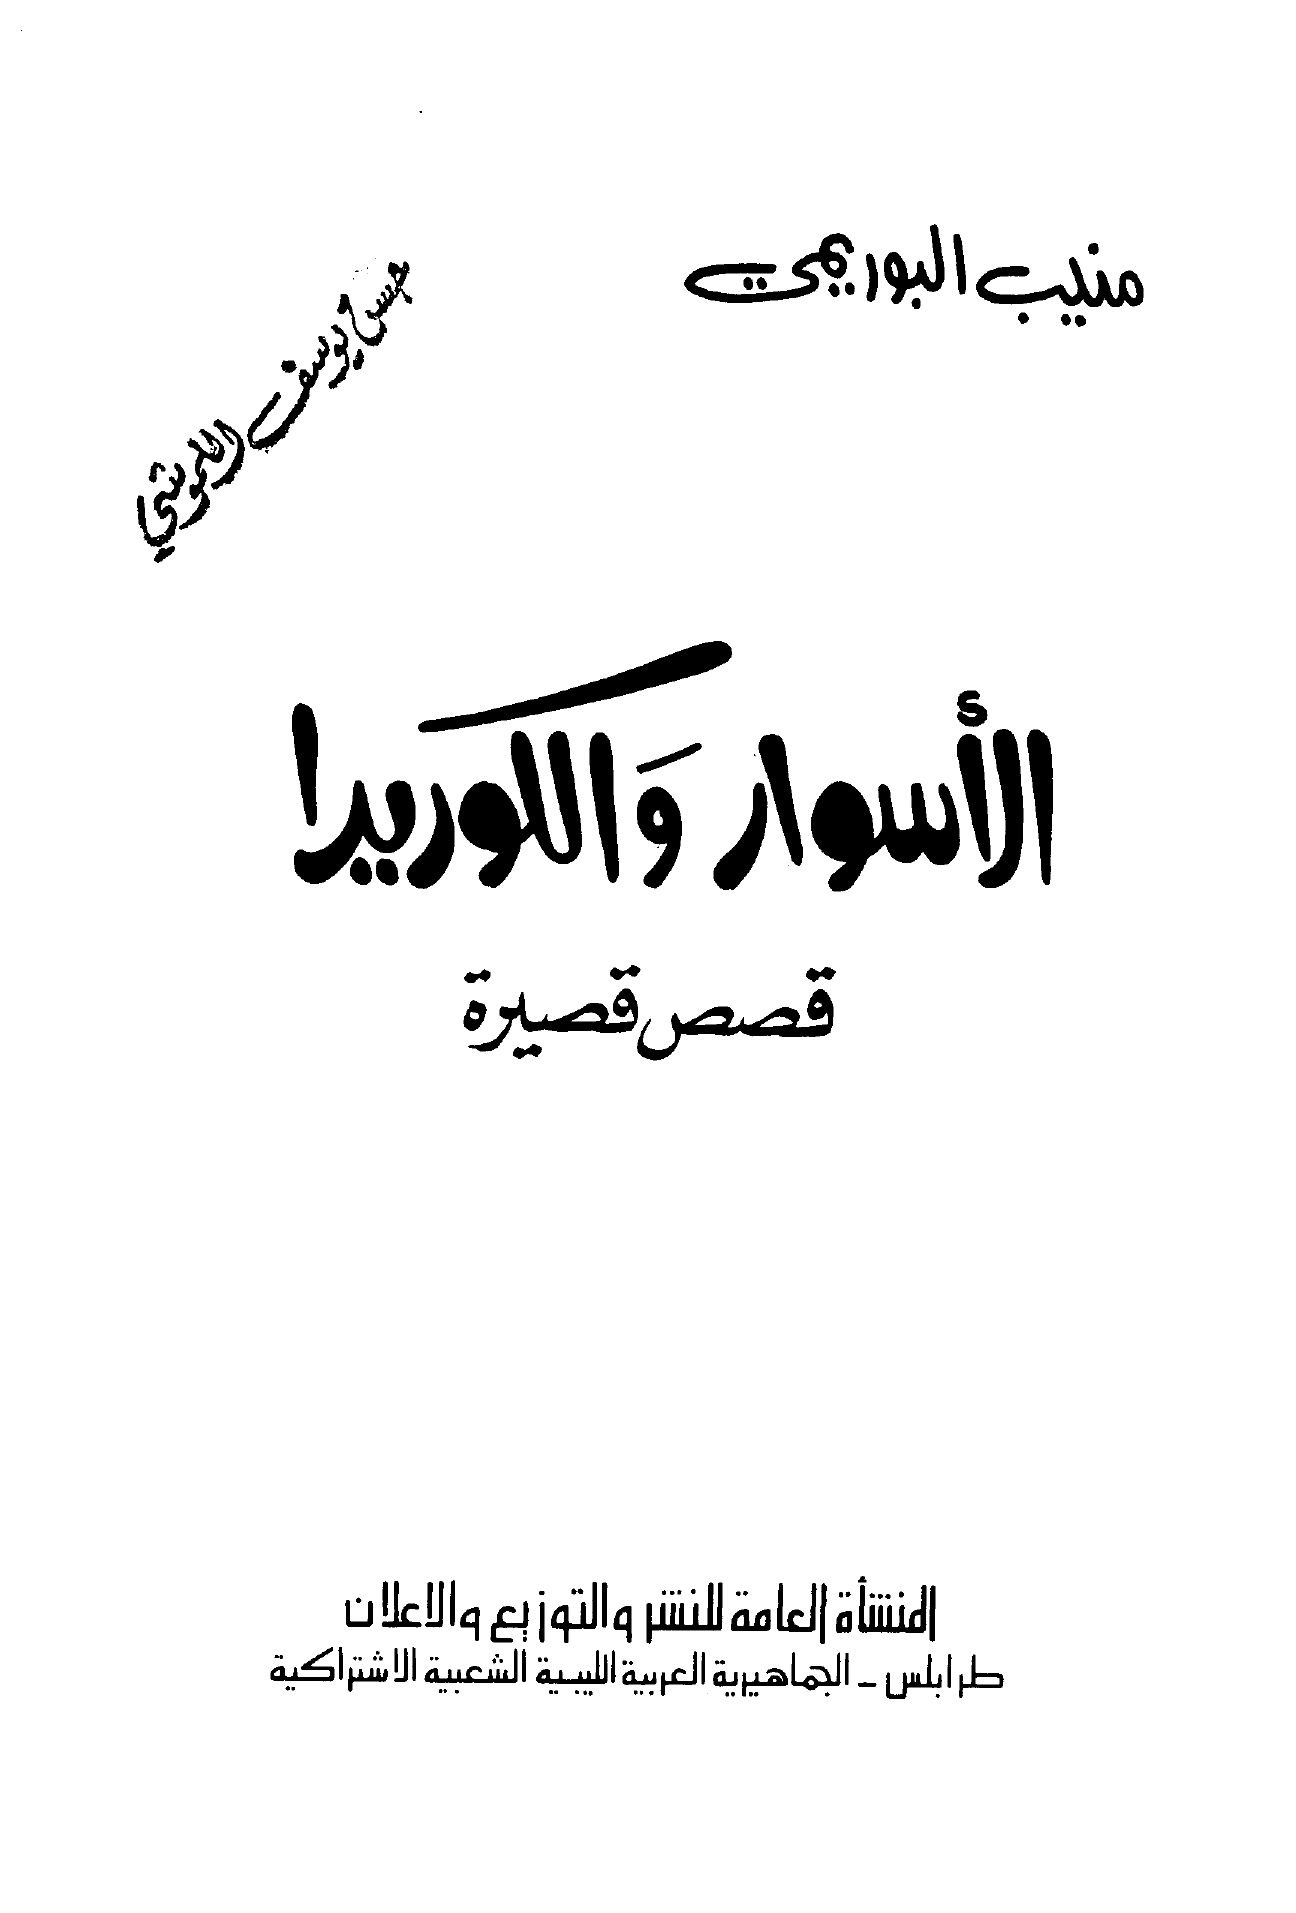 منيب البوريمي
حسن يوسف
الأسوار وَالكوريدا
قصص قصيرة
المنشأة العامة للنشر والتوزيع والاعلان
طرابلس – الجماهيرية العربية الليبية الشعبية الاشتراكية